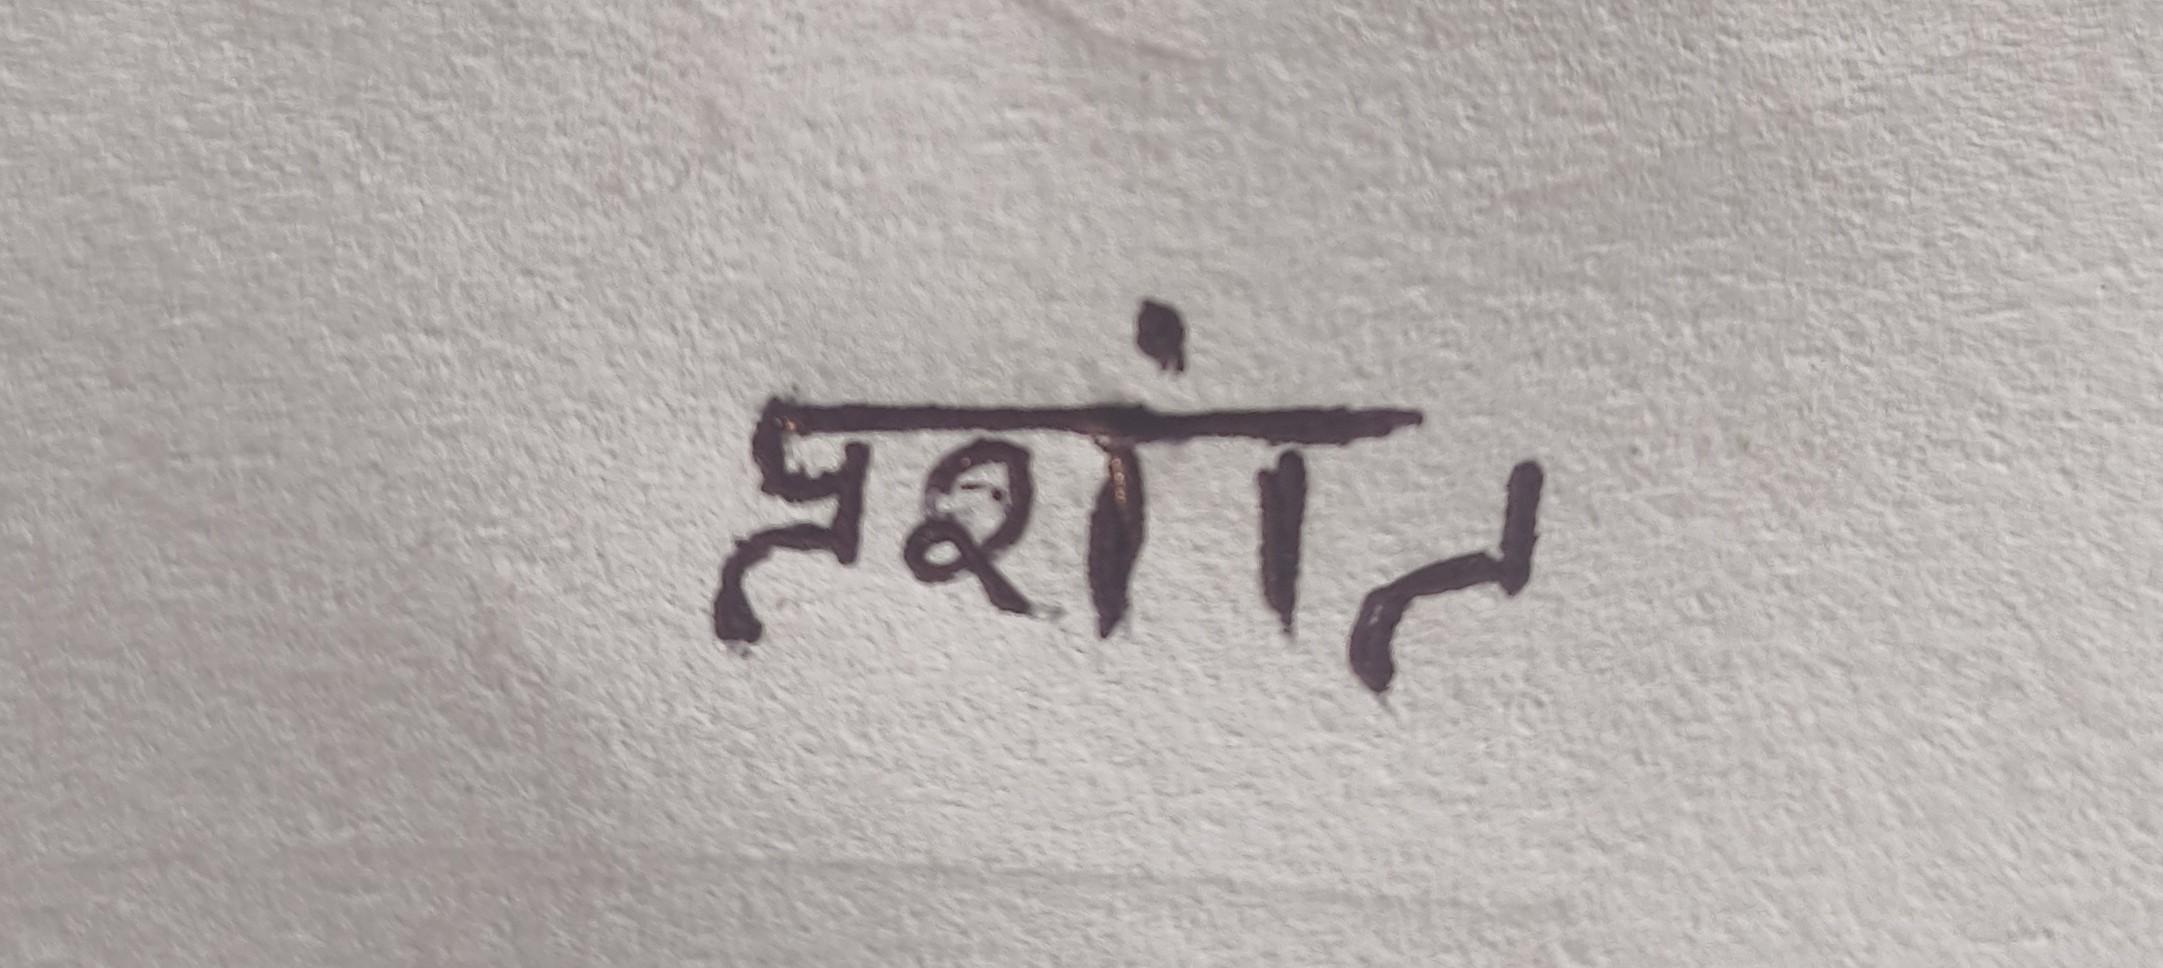 प्रशांत